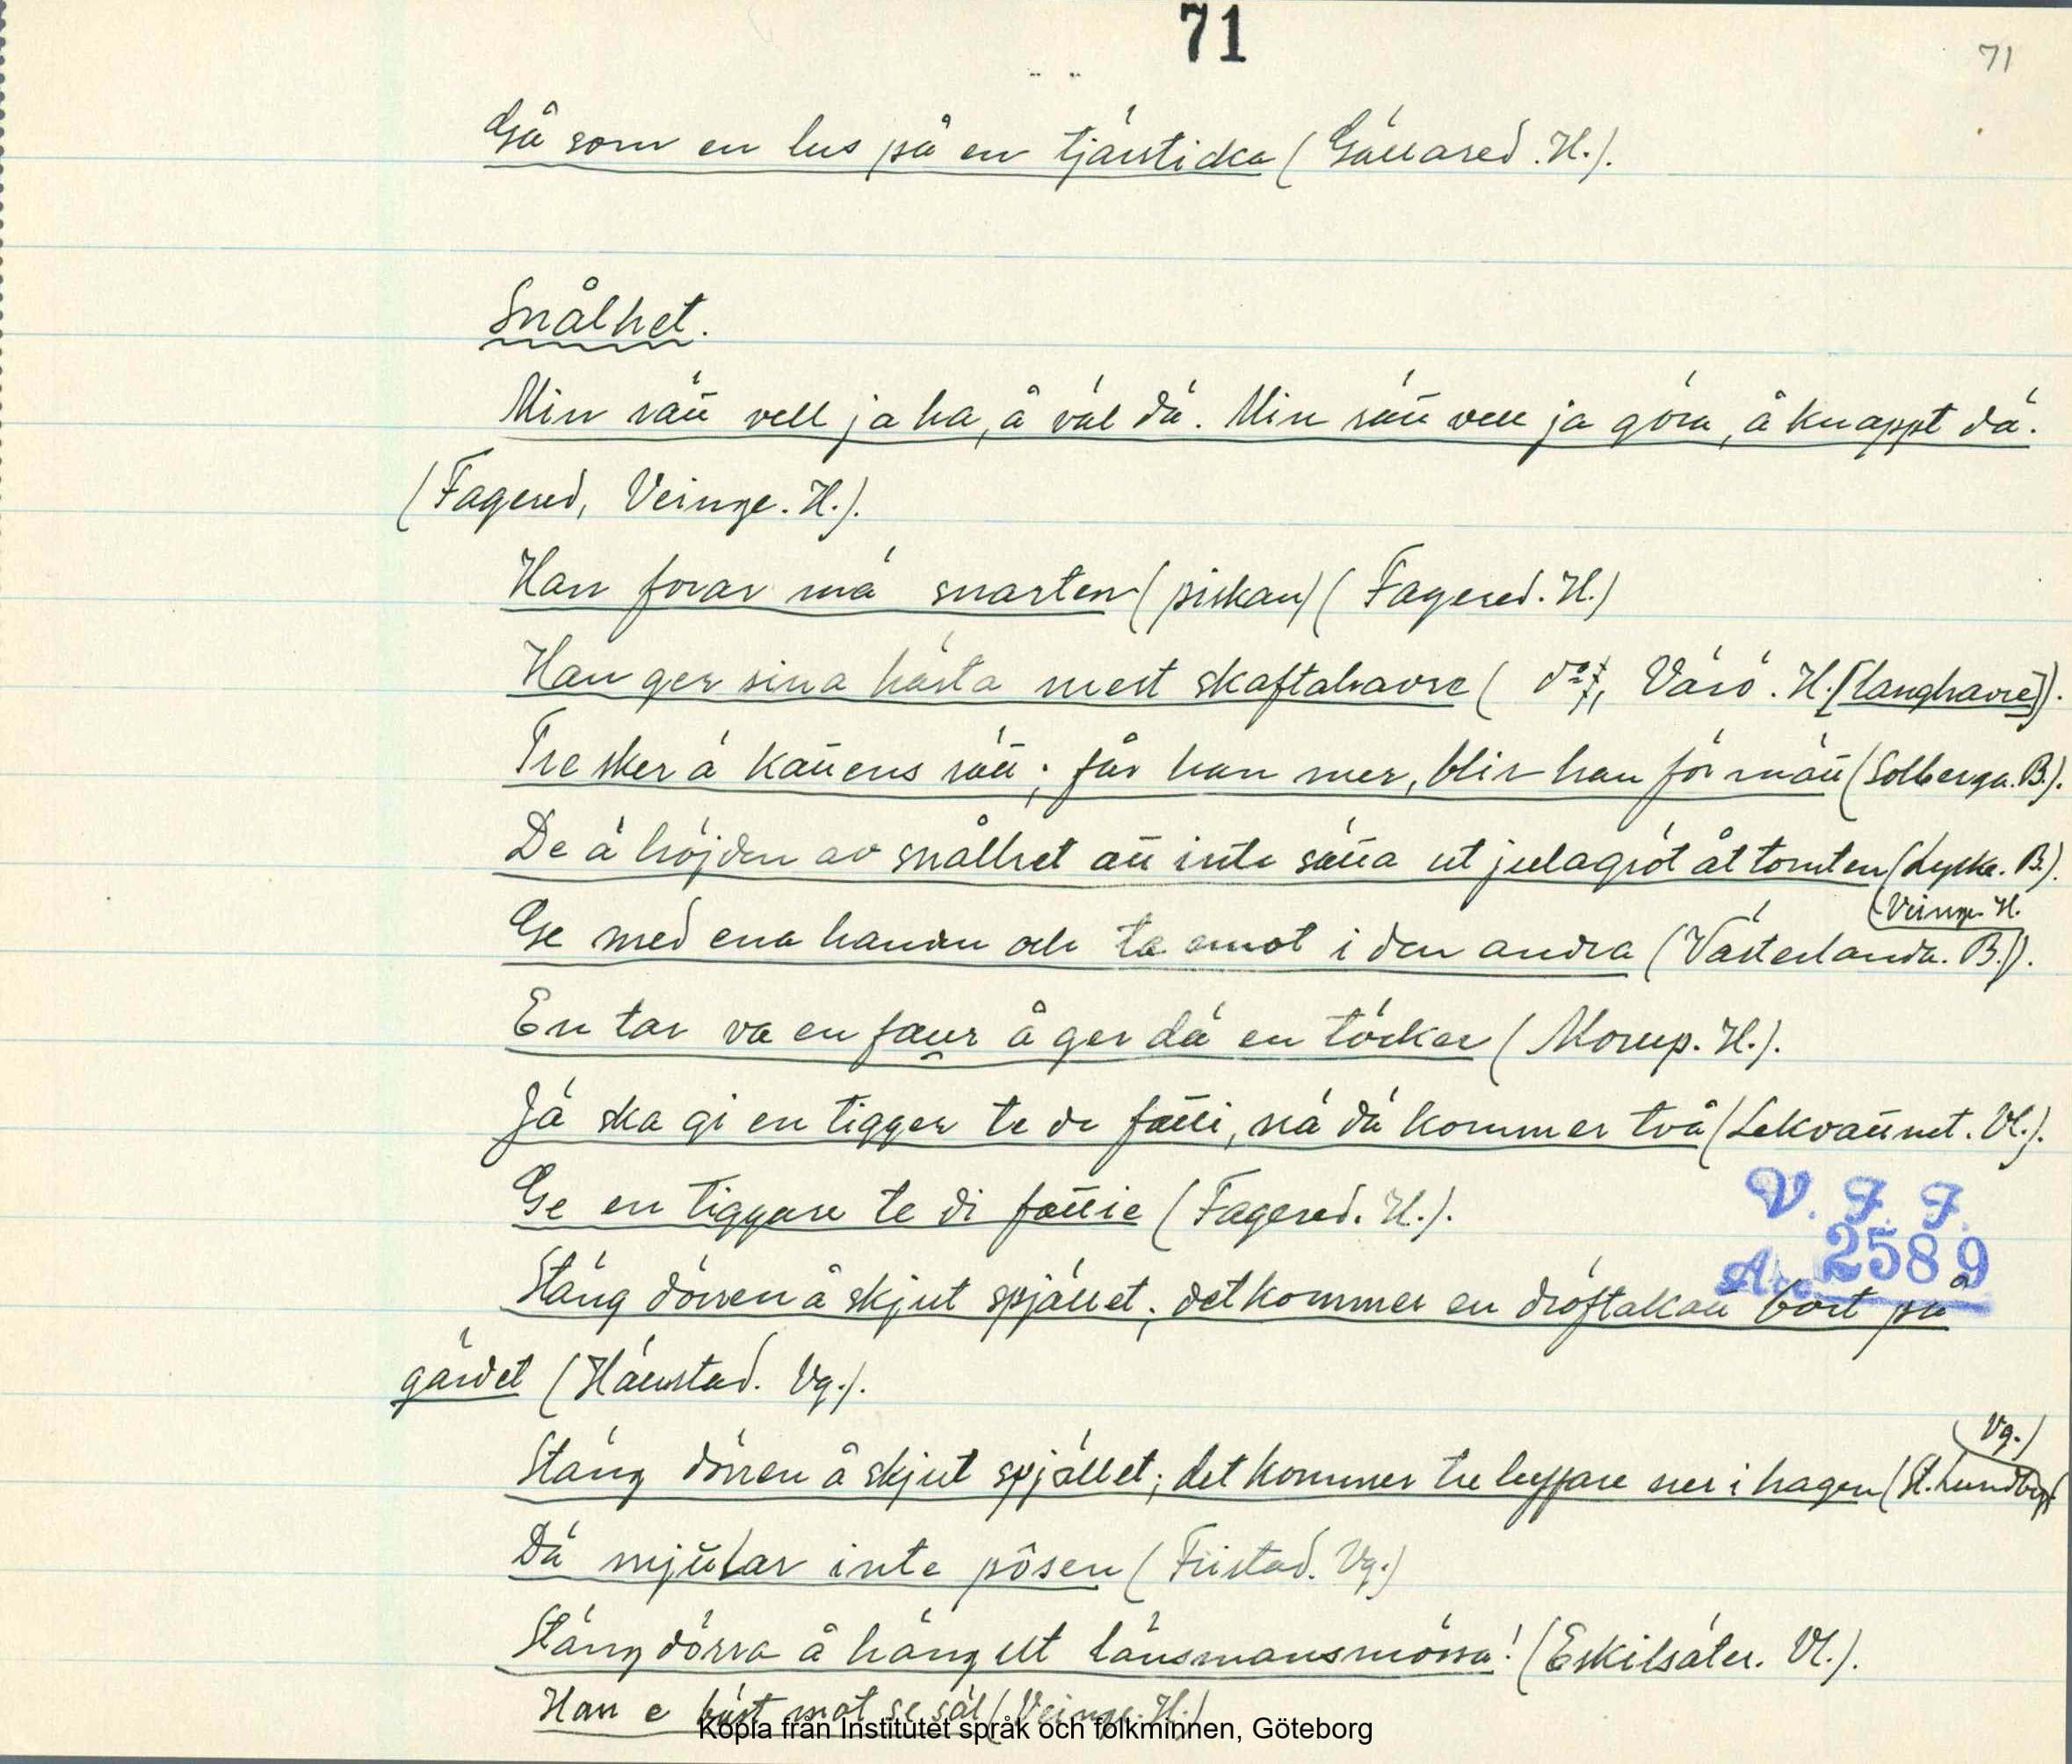 71
71
Gå som en lus på en tjärsticka (Gällared. H.).
Snålhet.
Min rätt vell ja ha, å väl dä. Min rätt vell ja göra, å knappt dä.
(Fagered, Veinge. H.).
Han forar mä snarten (piskan) (Fagered. H.)
Han ger sina hästa mest skaftahavre ( d:o, Värö. H. [langhavre]).
Tre sker ä kattens rätt; får han mer, blir han för mätt (Solberga. B.).
De ä höjden av snålhet att inte sätta ut julagröt åt tomten (Lycke. B.).
(Veinge. H.
Ge med ena handen och ta emot i den andra (Västerlanda. B.)).
En tar va en faur å ger dä en töcker (Morup. H.).
Jä ska gi en tigger te de fatti, nä dä kommer två (Lekvattnet. Vl.).
Ge en tiggare te di fattie (Fagered. H.).
V. F. F.
Acc. 2589
Stäng dörren å skjut spjället; det kommer en dröftakatt bort på
gärdet (Härnstad. Vg.).
Vg.)
Stäng dörren å skjut spjället; det kommer tre luffare ner i hagen (St. Lundby.
Dä mjukar inte pôsen (Fristad. Vg.)
Stäng dörra å häng ut länsmansmössa! (Eskilsäter. Vl.).
Han e bäst mot se säl (Veinge. H.)
Kopia från Institutet språk och folkminnen, Göteborg